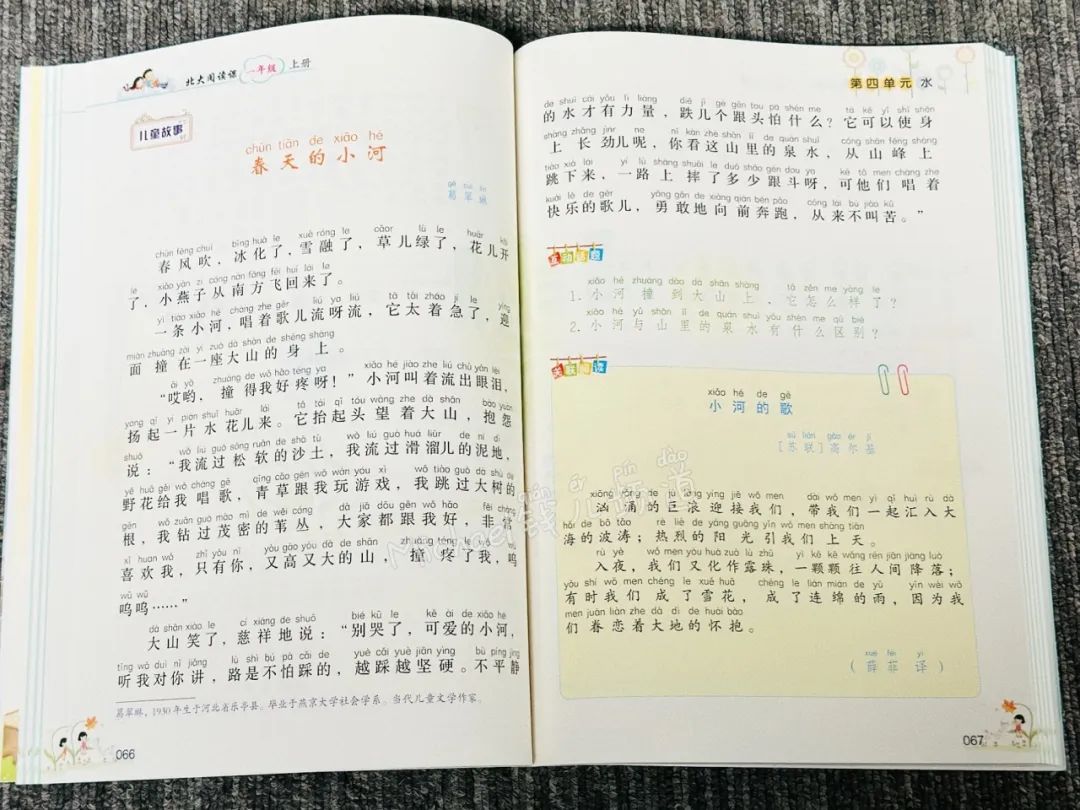 北大阅读课 一年级 上册
儿童故事
chūn tiān de xiǎo hé
春天的小河
gě cuì lín
葛翠琳
chūn fēng chuī bīng huà le xuě róng le cǎor lǜ le huār kāi
春风吹，冰化了，雪融了，草儿绿了，花儿开
le xiǎo yàn zi cóng nán fāng fēi huí lái le
了，小燕子从南方飞回来了。
yì tiáo xiǎo hé chàng zhe gēr liú ya liú tā tài jí le yíng
一条小河，唱着歌儿流呀流，它太着急了，迎
miàn zhuàng zài yí zuò dà shān de shēn shàng
面撞在一座大山的身上。
āi yō zhuàng de wǒ hǎo téng ya xiǎo hé jiào zhe liú chū yǎn lèi
“哎哟，撞得我好疼呀！”小河叫着流出眼泪，
yáng qǐ yí piàn shuǐ huār lái tā tái qǐ tóu wàng zhe dà shān bào yuàn
扬起一片水花儿来。它抬起头望着大山，抱怨
shuō wǒ liú guò sōng ruǎn de shā tǔ wǒ liú guò huá liūr de ní dì
说：“我流过松软的沙土，我流过滑溜儿的泥地，
yě huā gěi wǒ chàng gē qīng cǎo gēn wǒ wán yóu xì wǒ tiào guò dà shù de
野花给我唱歌，青草跟我玩游戏，我跳过大树的
gēn wǒ zuān guò mào mì de wěi cóng dà jiā dōu gēn wǒ hǎo fēi cháng
根，我钻过茂密的苇丛，大家都跟我好，非常
xǐ huan wǒ zhǐ yǒu nǐ yòu gāo yòu dà de shān zhuàng téng le wǒ wū
喜欢我，只有你，又高又大的山，撞疼了我，呜
wū wū
呜呜……”
dà shān xiào le cí xiáng de shuō bié kū le kě ài de xiǎo hé
大山笑了，慈祥地说：“别哭了，可爱的小河，
tīng wǒ duì nǐ jiǎng lù shì bú pà cǎi de yuè cǎi yuè jiān yìng bù píng jìng
听我对你讲，路是不怕踩的，越踩越坚硬。不平静
葛翠琳，1930年生于河北省乐亭县。毕业于燕京大学社会学系。当代儿童文学作家。
066
第四单元 水
de shuǐ cái yǒu lì liàng diē jǐ gè gēn tou pà shén me tā kě yǐ shǐ shēn
的水才有力量，跌几个跟头怕什么？它可以使身
shàng zhǎng jìnr ne nǐ kàn zhè shān lǐ de quán shuǐ cóng shān fēng shàng
上长劲儿呢，你看这山里的泉水，从山峰上
tiào xià lái yí lù shàng shuāi le duō shǎo gēn dou ya kě tā men chàng zhe
跳下来，一路上摔了多少跟斗呀，可他们唱着
kuài lè de gēr yǒng gǎn de xiàng qián bēn pǎo cóng lái bú jiào kǔ
快乐的歌儿，勇敢地向前奔跑，从来不叫苦。”
互动话题
xiǎo hé zhuàng dào dà shān shàng tā zěn me yàng le
1. 小河撞到大山上，它怎么样了？
xiǎo hé yǔ shān lǐ de quán shuǐ yǒu shén me qū bié
2. 小河与山里的泉水有什么区别？
关联阅读
xiǎo hé de gē
小河的歌
sū lián gāo ěr jī
［苏联］高尔基
xiōng yǒng de jù làng yíng jiē wǒ men dài wǒ men yì qǐ huì rù dà
汹涌的巨浪迎接我们，带我们一起汇入大
hǎi de bō tāo rè liè de yáng guāng yǐn wǒ men shàng tiān
海的波涛；热烈的阳光引我们上天。
rù yè wǒ men yòu huà zuò lù zhū yì kē kē wǎng rén jiān jiàng luò
入夜，我们又化作露珠，一颗颗往人间降落；
yǒu shí wǒ men chéng le xuě huā chéng le lián mián de yǔ yīn wèi wǒ
有时我们成了雪花，成了连绵的雨，因为我
men juàn liàn zhe dà dì de huái bào
们眷恋着大地的怀抱。
xuē fēi yì
（薛菲 译）
067